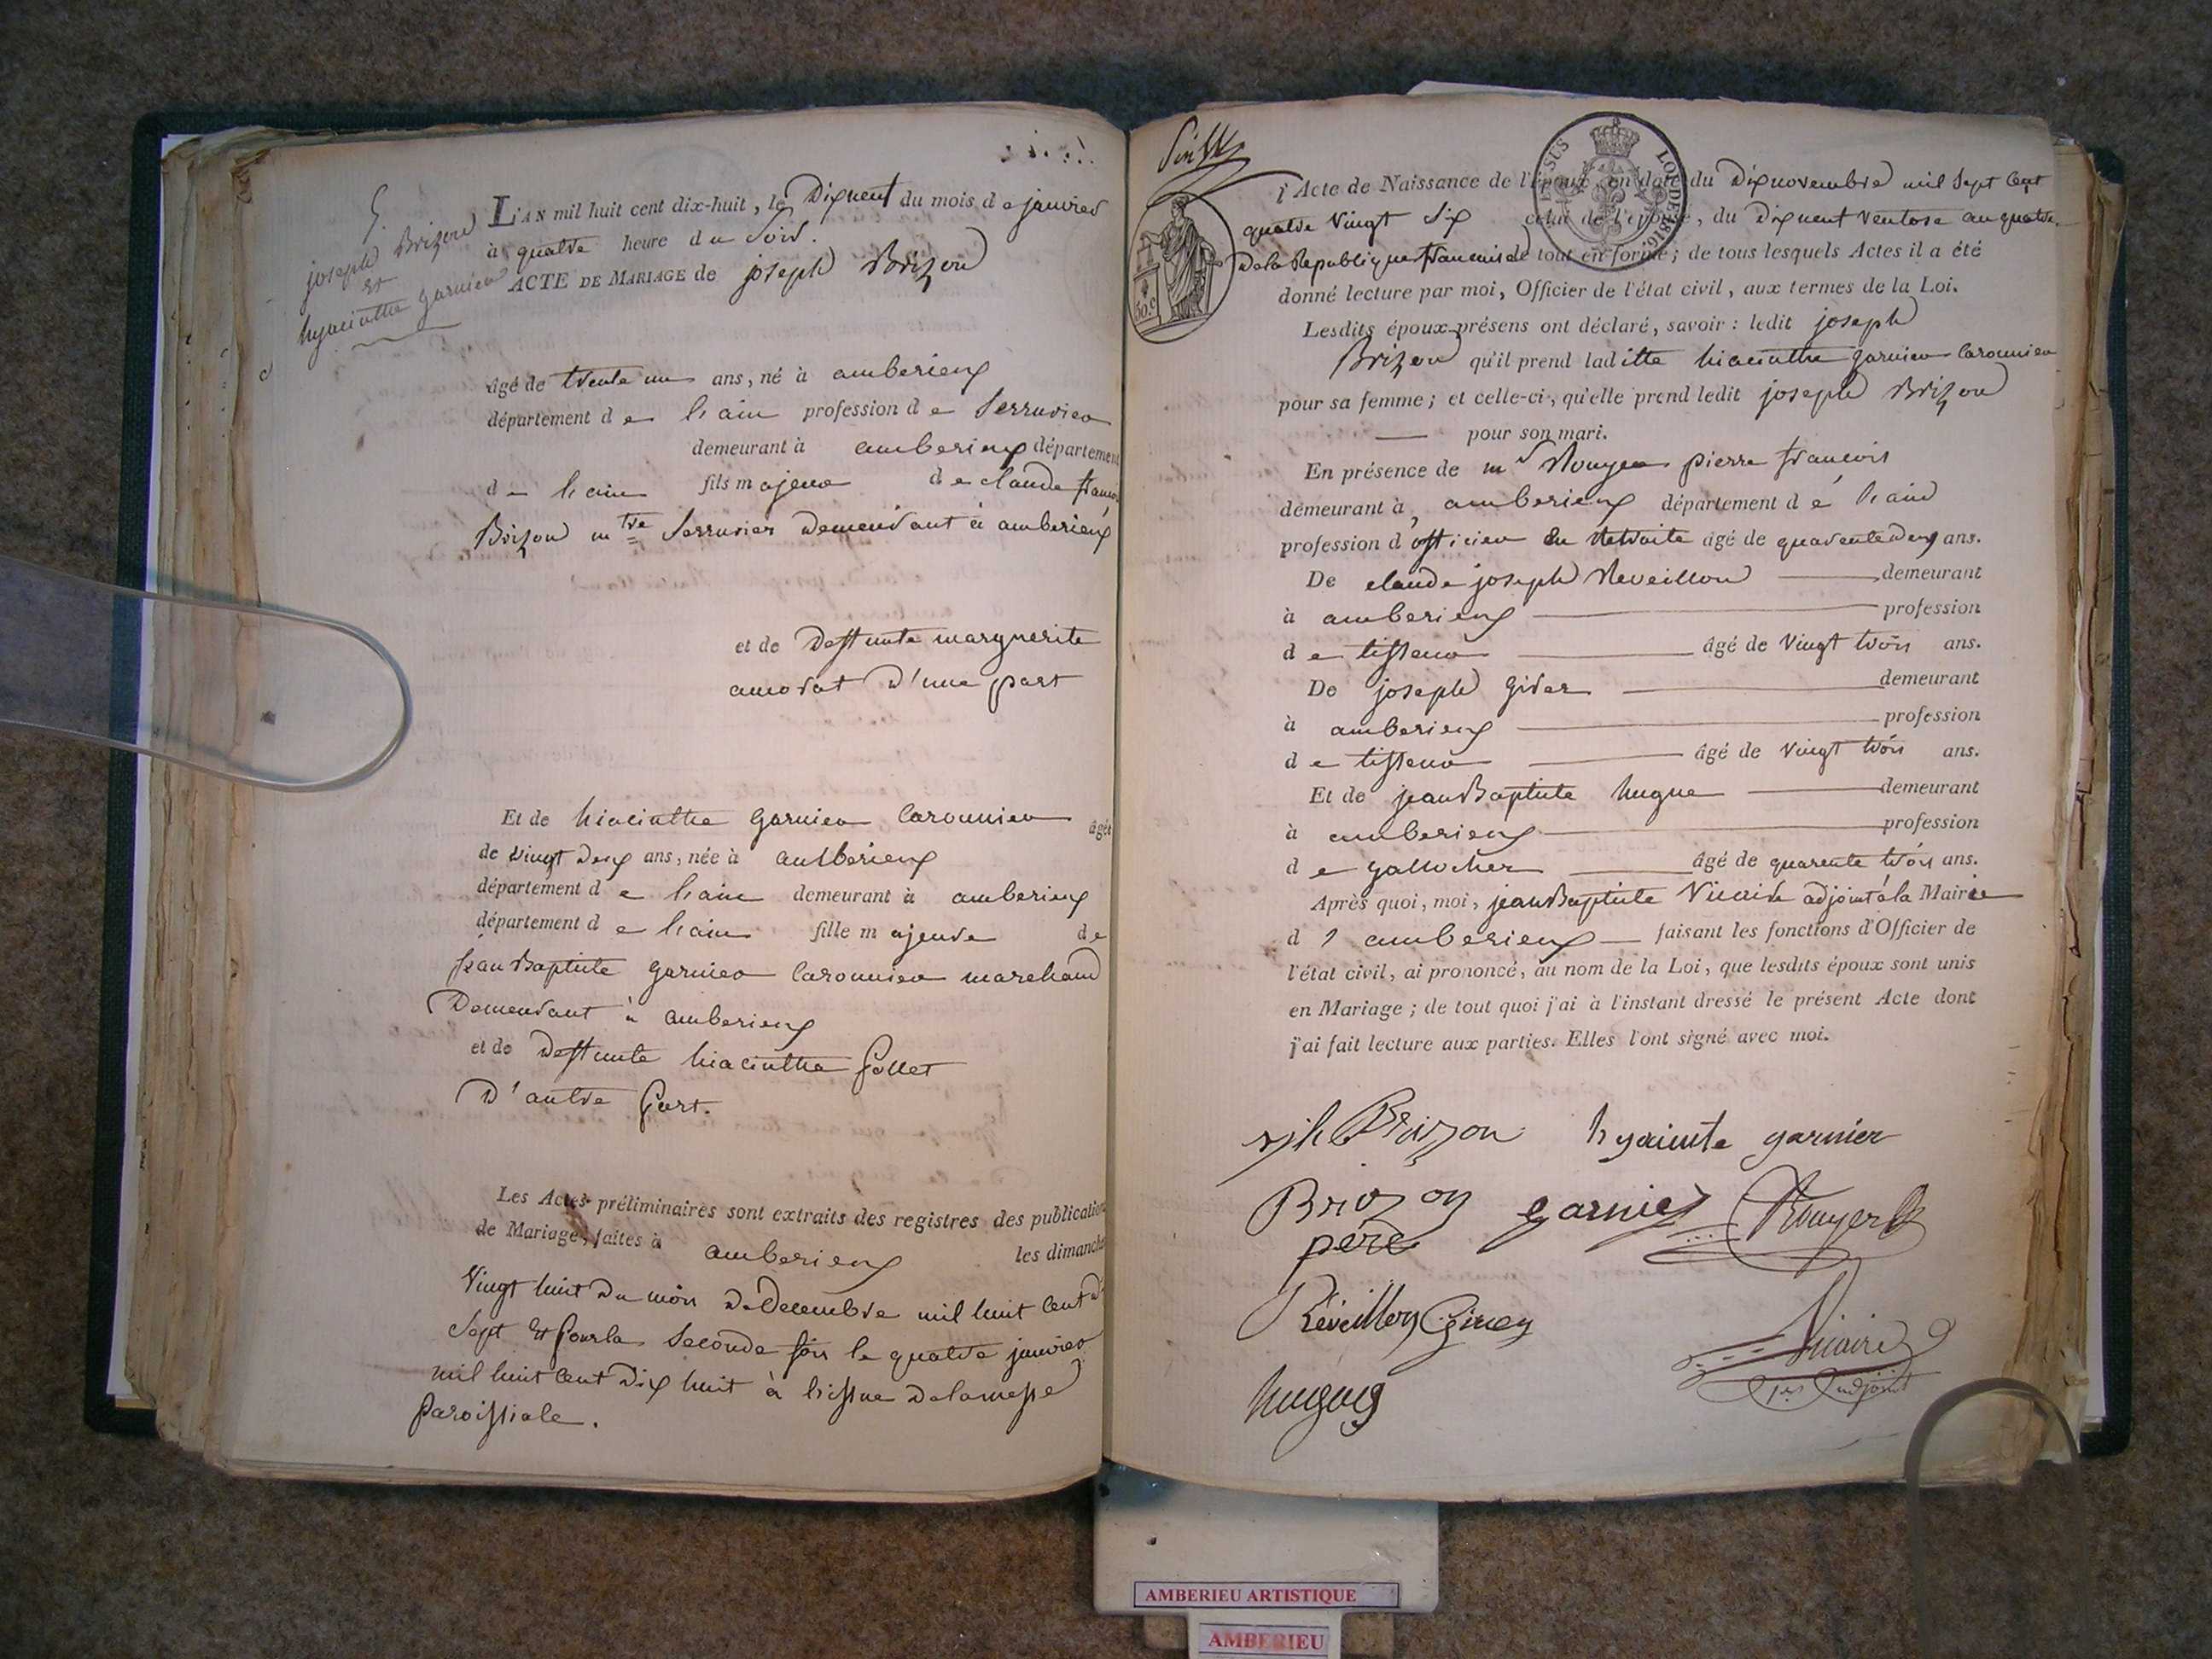 5.
joseph Brizon
et
hyacinthe garnier
L'AN mil huit cent dix-huit, le Dixneuf du mois de janvier
à quatre heure du Soir.
ACTE DE MARIAGE de joseph Brizon
âgé de trente un ans, né à amberieux
département de l'ain profession de Serrurier
demeurant à amberieux département
de l'ain fils majeur de claude françois
Brizon mtre Serrurier Demeurant à amberieux
et de Deffunte marguerite
amorat D'une part
Et de hiacinthe garnier Caronnier âgée
de vingt Deux ans, née à amberieux
département de l'ain demeurant à amberieux
département de l'ain fille majeure de
jean Baptiste garnier Caronnier marchand
Demeurant à amberieux
et de Deffunte hiacinthe follet
D'autre part.
Les Actes préliminaires sont extraits des registres des publications
de Mariage, faites à amberieux les dimanches
Vingt huit Du mois De Decembre mil huit Cent Dix
Sept Et pour la Seconde fois le quatre janvier
mil huit Cent Dix huit à l'issue De la messe
paroissiale.
l'Acte de Naissance de l'époux en date du Dix novembre mil Sept Cent
quatre Vingt Six celui de l'épouse, du Dixneuf Ventose an quatre
De la Republique francaise le tout en forme; de tous lesquels Actes il a été
donné lecture par moi, Officier de l'état civil, aux termes de la Loi.
30.c
Lesdits époux présens ont déclaré, savoir: ledit joseph
Brizon qu'il prend laditte hiacinthe garnier Caronnier
pour sa femme; et celle-ci, qu'elle prend ledit joseph Brizon
pour son mari.
En présence de mr Rouyer pierre francois
demeurant à amberieux département de l'ain
profession d'officier En Retraite âgé de quarente Deux ans.
De claude joseph Reveillon demeurant
à amberieux profession
de tisseur âgé de Vingt trois ans.
De joseph Girer demeurant
à amberieux profession
de tisseur âgé de Vingt trois ans.
Et de jean Baptiste hugue demeurant
à amberieux profession
de gallocher âgé de quarente trois ans.
Après quoi, moi, jean Baptiste Vicaire adjoint à la Mairie
d'amberieux faisant les fonctions d'Officier de
l'état civil, ai prononcé, au nom de la Loi, que lesdits époux sont unis
en Mariage; de tout quoi j'ai à l'instant dressé le présent Acte dont
j'ai fait lecture aux parties. Elles l'ont signé avec moi.
Brizon hyacinte garnier
Brizon garnier Rouyer
pere
Réveillon Girer
Vicaire
1er adjoint
hugue
AMBERIEU ARTISTIQUE
AMBERIEU